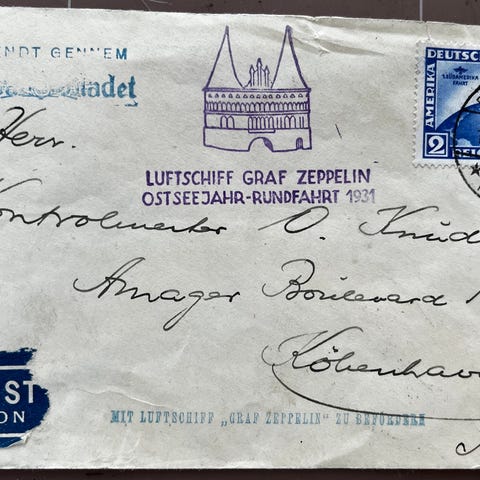 ENDT GENNEM
ladet
LUFTSCHIFF GRAF ZEPPELIN
OSTSEEJAHR-RUNDFAHRT 1931
DEUTSCH
1.SÜDAMERIKA
FAHRT
AMERIKA
2
Herr.
Kontrolmester O. Knud
Amager Boulevard 1
Köbenhav
ST
ON
MIT LUFTSCHIFF „GRAF ZEPPELIN“ ZU BEFÖRDERN